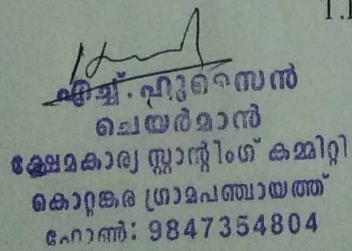 എച്ച്. ഹുസൈൻ
ചെയർമാൻ
ക്ഷേമകാര്യ സ്റ്റാന്റിംഗ് കമ്മിറ്റി
കൊറ്റങ്കര ഗ്രാമപഞ്ചായത്ത്
ഫോൺ: 9847354804